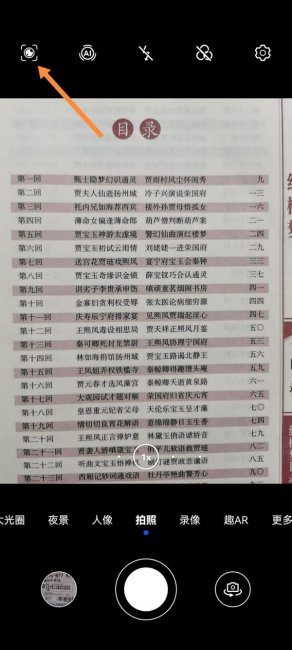 AI
目录
第一回 甄士隐梦幻识通灵 贾雨村风尘怀闺秀 九
第二回 贾夫人仙逝扬州城 冷子兴演说荣国府 一三
第三回 托内兄如海荐西宾 接外孙贾母惜孤女 一六
第四回 薄命女偏逢薄命郎 葫芦僧判断葫芦案 二一
第五回 贾宝玉神游太虚境 警幻仙曲演红楼梦 二四
第六回 贾宝玉初试云雨情 刘姥姥一进荣国府 二九
第七回 送宫花贾琏戏熙凤 宴宁府宝玉会秦钟 三三
第八回 贾宝玉奇缘识金锁 薛宝钗巧合认通灵 三七
第九回 训劣子李贵承申饬 嗔顽童茗烟闹书房 四一
第十回 金寡妇贪利权受辱 张太医论病细穷源 四四
第十一回 庆寿辰宁府排家宴 见熙凤贾瑞起淫心 四七
第十二回 王熙凤毒设相思局 贾天祥正照风月鉴 五〇
第十三回 秦可卿死封龙禁尉 王熙凤协理宁国府 五三
第十四回 林如海捐馆扬州城 贾宝玉路谒北静王 五六
第十五回 王凤姐弄权铁槛寺 秦鲸卿得趣馒头庵 五九
第十六回 贾元春才选凤藻宫 秦鲸卿夭逝黄泉路 六一
第十七回 大观园试才题对额 荣国府归省庆元宵 六五
第十八回 皇恩重元妃省父母 天伦乐宝玉呈才藻 七〇
第十九回 情切切良宵花解语 意绵绵静日玉生香 七四
第二十回 王熙凤正言弹妒意 林黛玉俏语谑娇音 七九
第二十一回 贤袭人娇嗔箴宝玉 俏平儿软语救贾琏 八二
第二十二回 听曲文宝玉悟禅机 灯谜贾政悲谶语 八五
第二十三回 西厢记妙词通戏语 牡丹亭艳曲警芳心
1x
大光圈 夜景 人像 拍照 录像 趣AR 更多